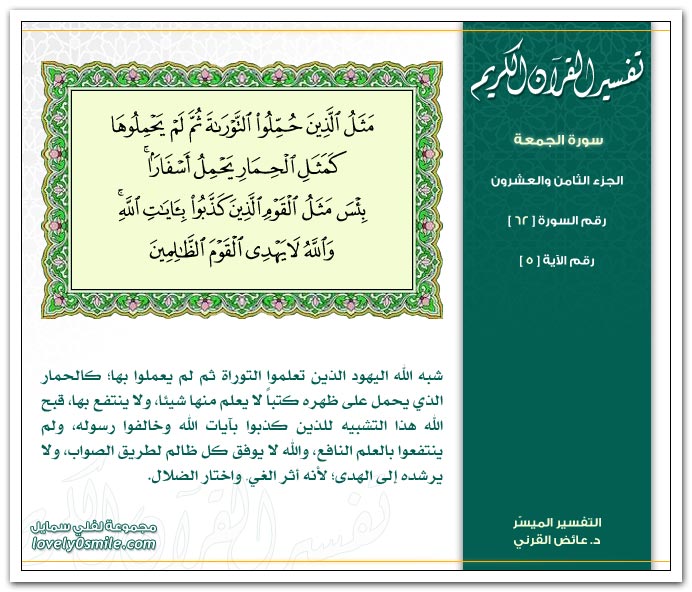 تفسير القرآن الكريم
سورة الجمعة
الجزء الثامن والعشرون
رقم السورة [ ٦٢ ]
رقم الآية [ ٥ ]
مَثَلُ ٱلَّذِينَ حُمِّلُوا۟ ٱلتَّوْرَىٰةَ ثُمَّ لَمْ يَحْمِلُوهَا
كَمَثَلِ ٱلْحِمَارِ يَحْمِلُ أَسْفَارًۢا ۚ
بِئْسَ مَثَلُ ٱلْقَوْمِ ٱلَّذِينَ كَذَّبُوا۟ بِـَٔايَـٰتِ ٱللَّهِ ۚ
وَٱللَّهُ لَا يَهْدِى ٱلْقَوْمَ ٱلظَّـٰلِمِينَ
شبه الله اليهود الذين تعلموا التوراة ثم لم يعملوا بها؛ كالحمار
الذي يحمل على ظهره كتباً لا يعلم منها شيئا، ولا ينتفع بها، قبح
الله هذا التشبيه للذين كذبوا بآيات الله وخالفوا رسوله، ولم
ينتفعوا بالعلم النافع، والله لا يوفق كل ظالم لطريق الصواب، ولا
يرشده إلى الهدى؛ لأنه أثر الغي واختار الضلال.
التفسير الميسّر
د. عائض القرني
مجموعة لفلي سمايل
lovely0smile.com
تفسير القرآن الكريم